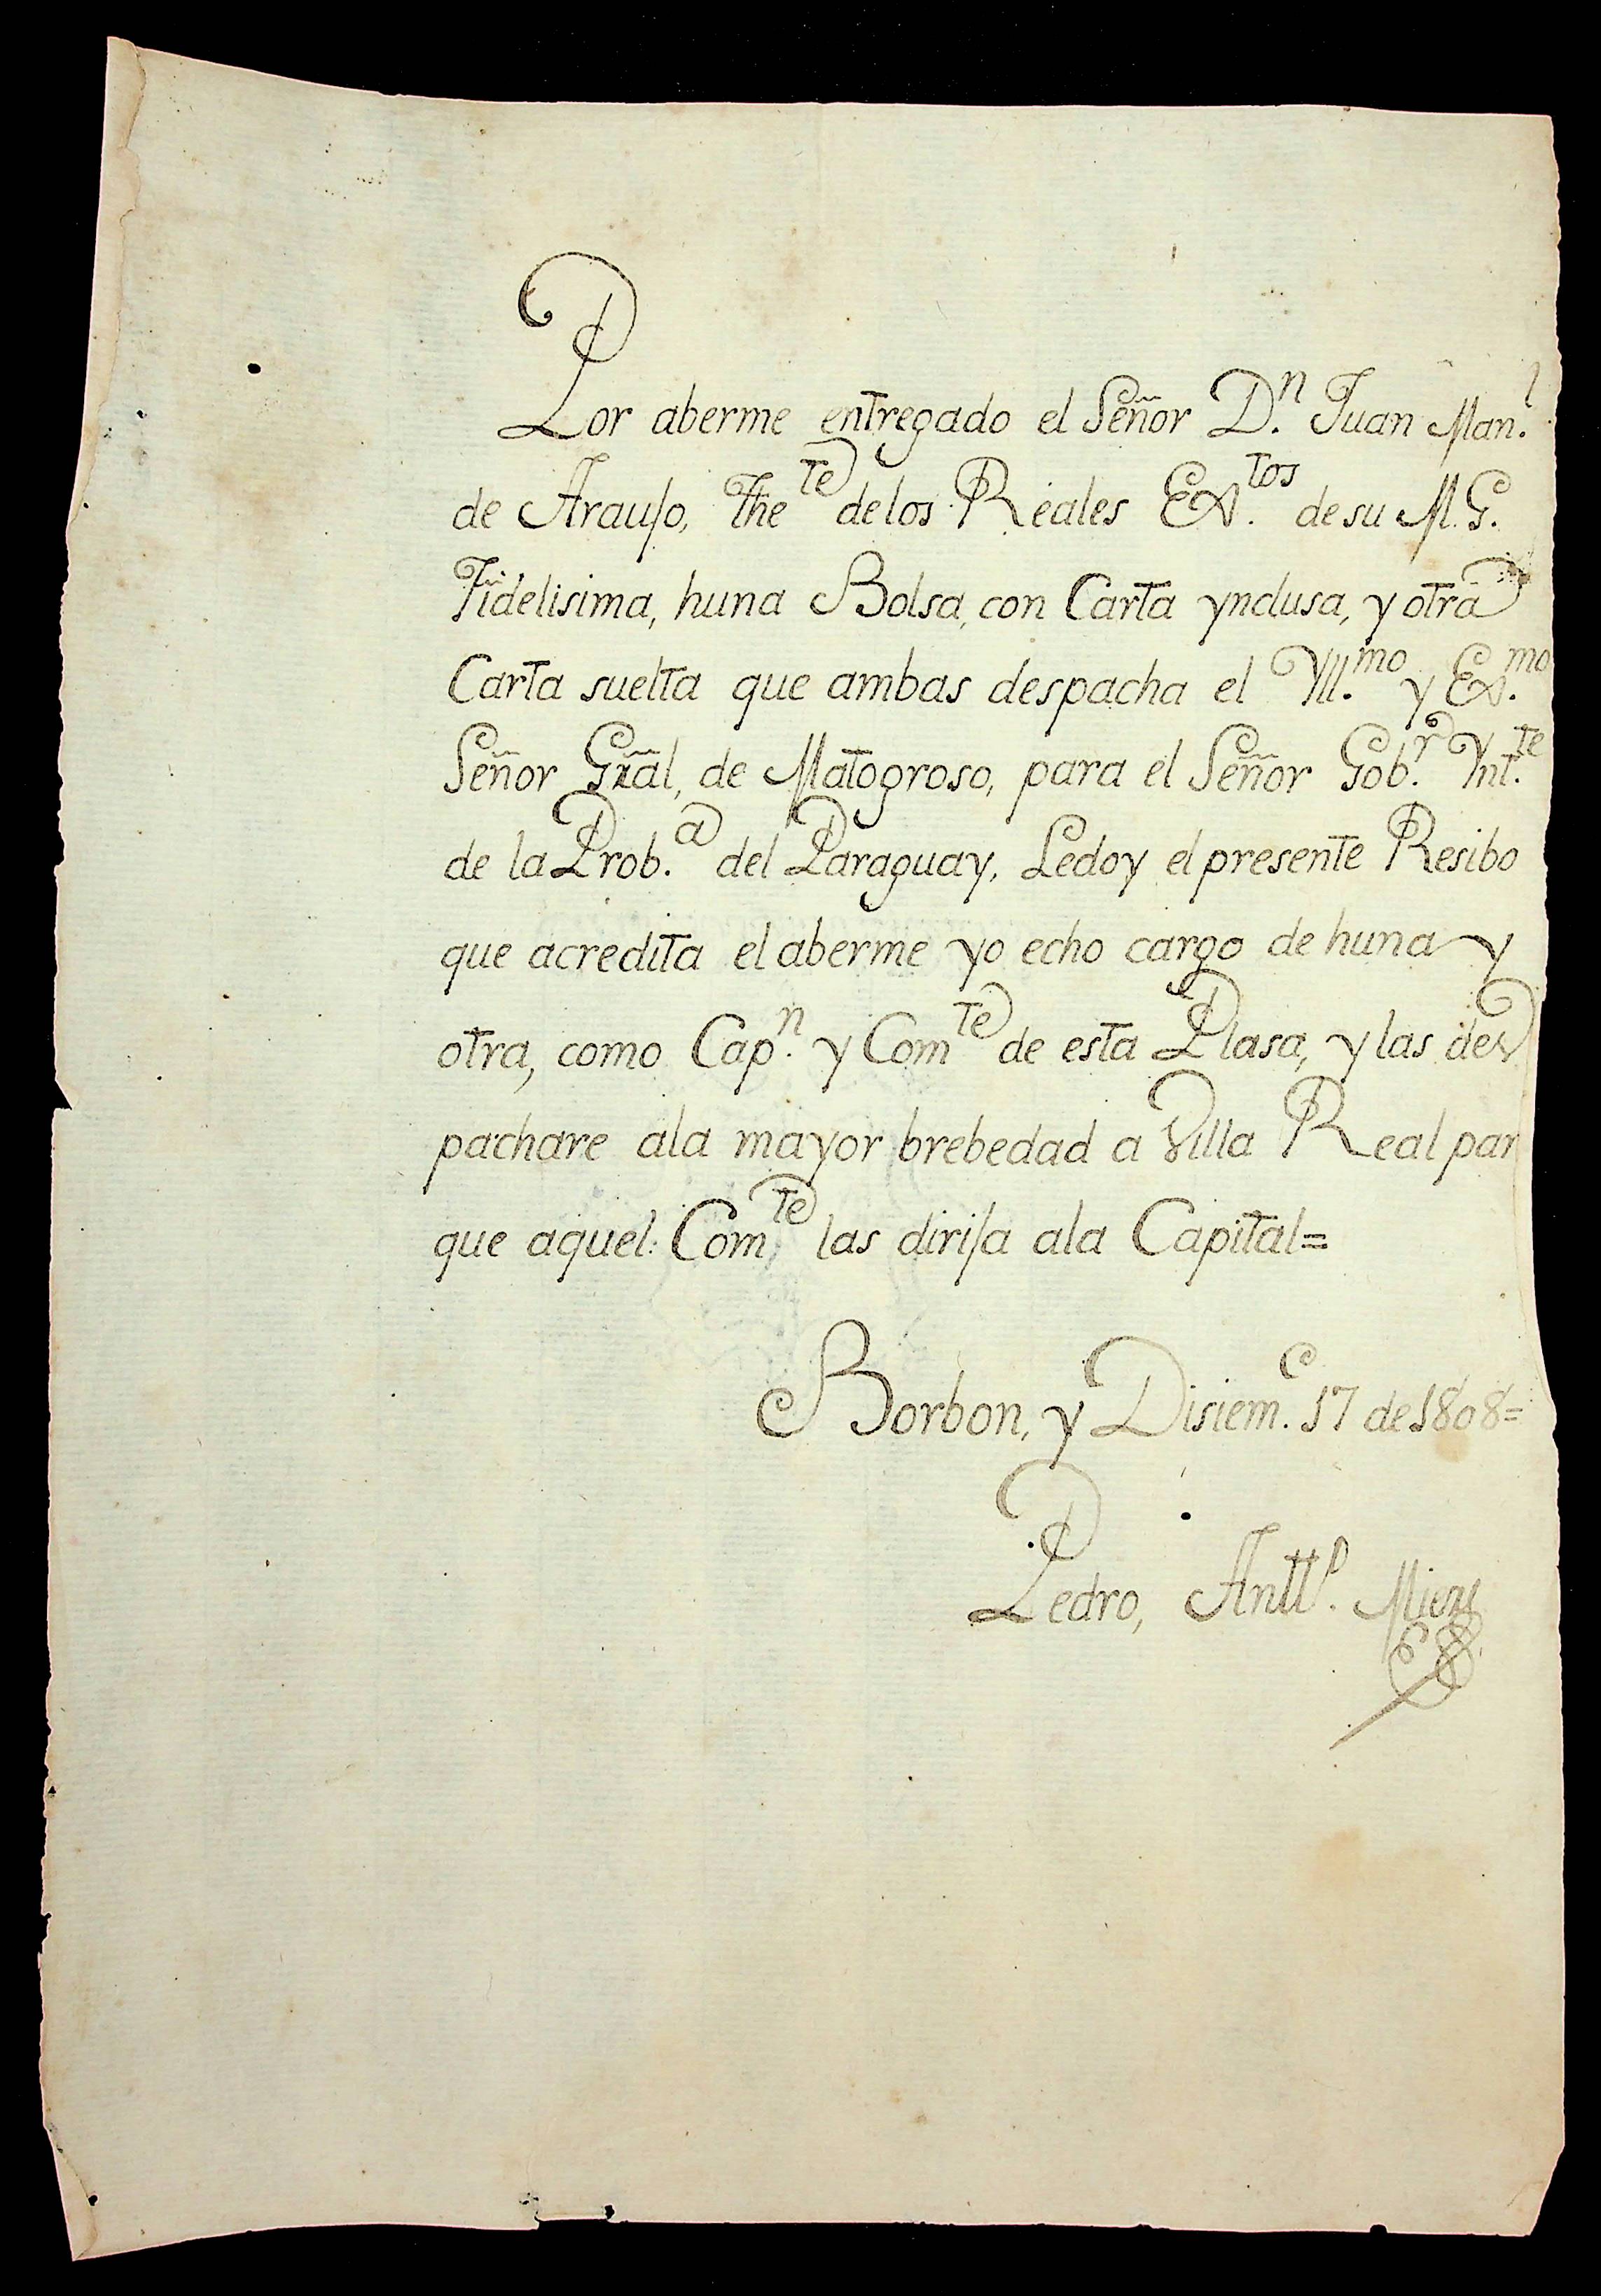 Por aberme entregado el Señor D.ⁿ Juan Man.ˡ
de Araujo, Theᵗᵉ de los Reales Ex.ᵗᵒˢ de su M. G.
Fidelisima, huna Bolsa, con Carta ynclusa, y otra
Carta suelta que ambas despacha el Yll.ᵐᵒ y Ex.ᵐᵒ
Señor Gñal, de Matogroso, para el Señor Gob.ʳ Ynt.ᵗᵉ
de la Prob.ᵃ del Paraguay, Ledoy el presente Resibo
que acredita el aberme yo echo cargo de huna y
otra, como Cap.ⁿ y Comᵗᵉ de esta Plasa, y las des
pachare ala mayor brebedad a Villa Real par
que aquel: Comᵗᵉ las dirija ala Capital=
Borbon, y Disiem.ᵉ 17 de 1808=
Pedro, Antt.º